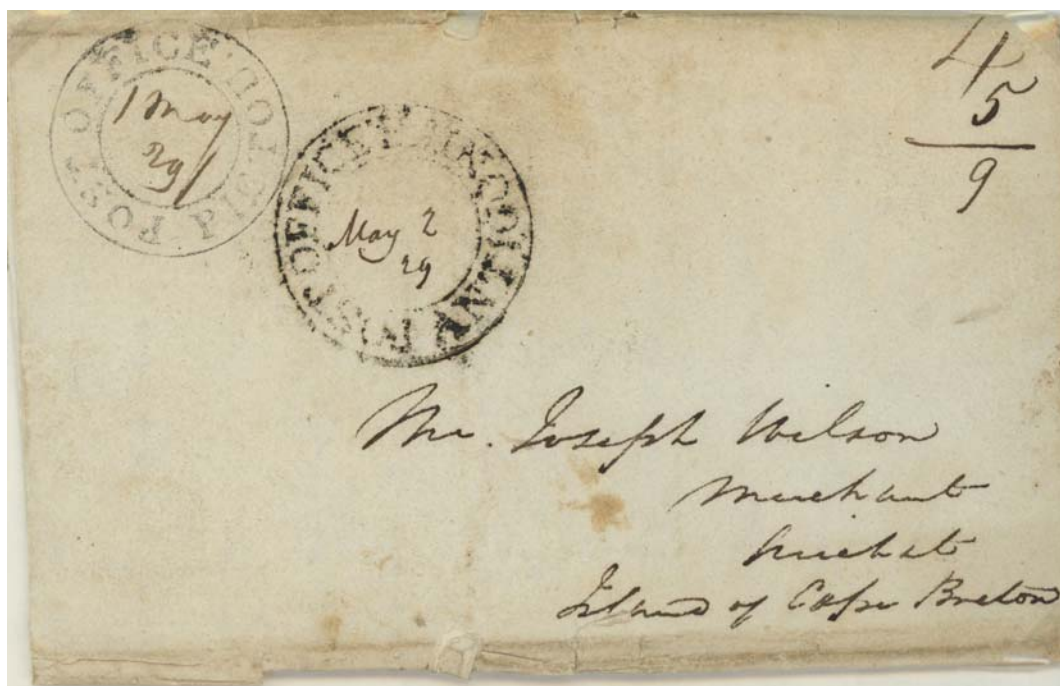 POST OFFICE PICTOU
1 May
29
POST OFFICE ANTIGONISH
May 2
29
4
5
9
Mr. Joseph Wilson
Merchant
Arichat
Island of Cape Breton